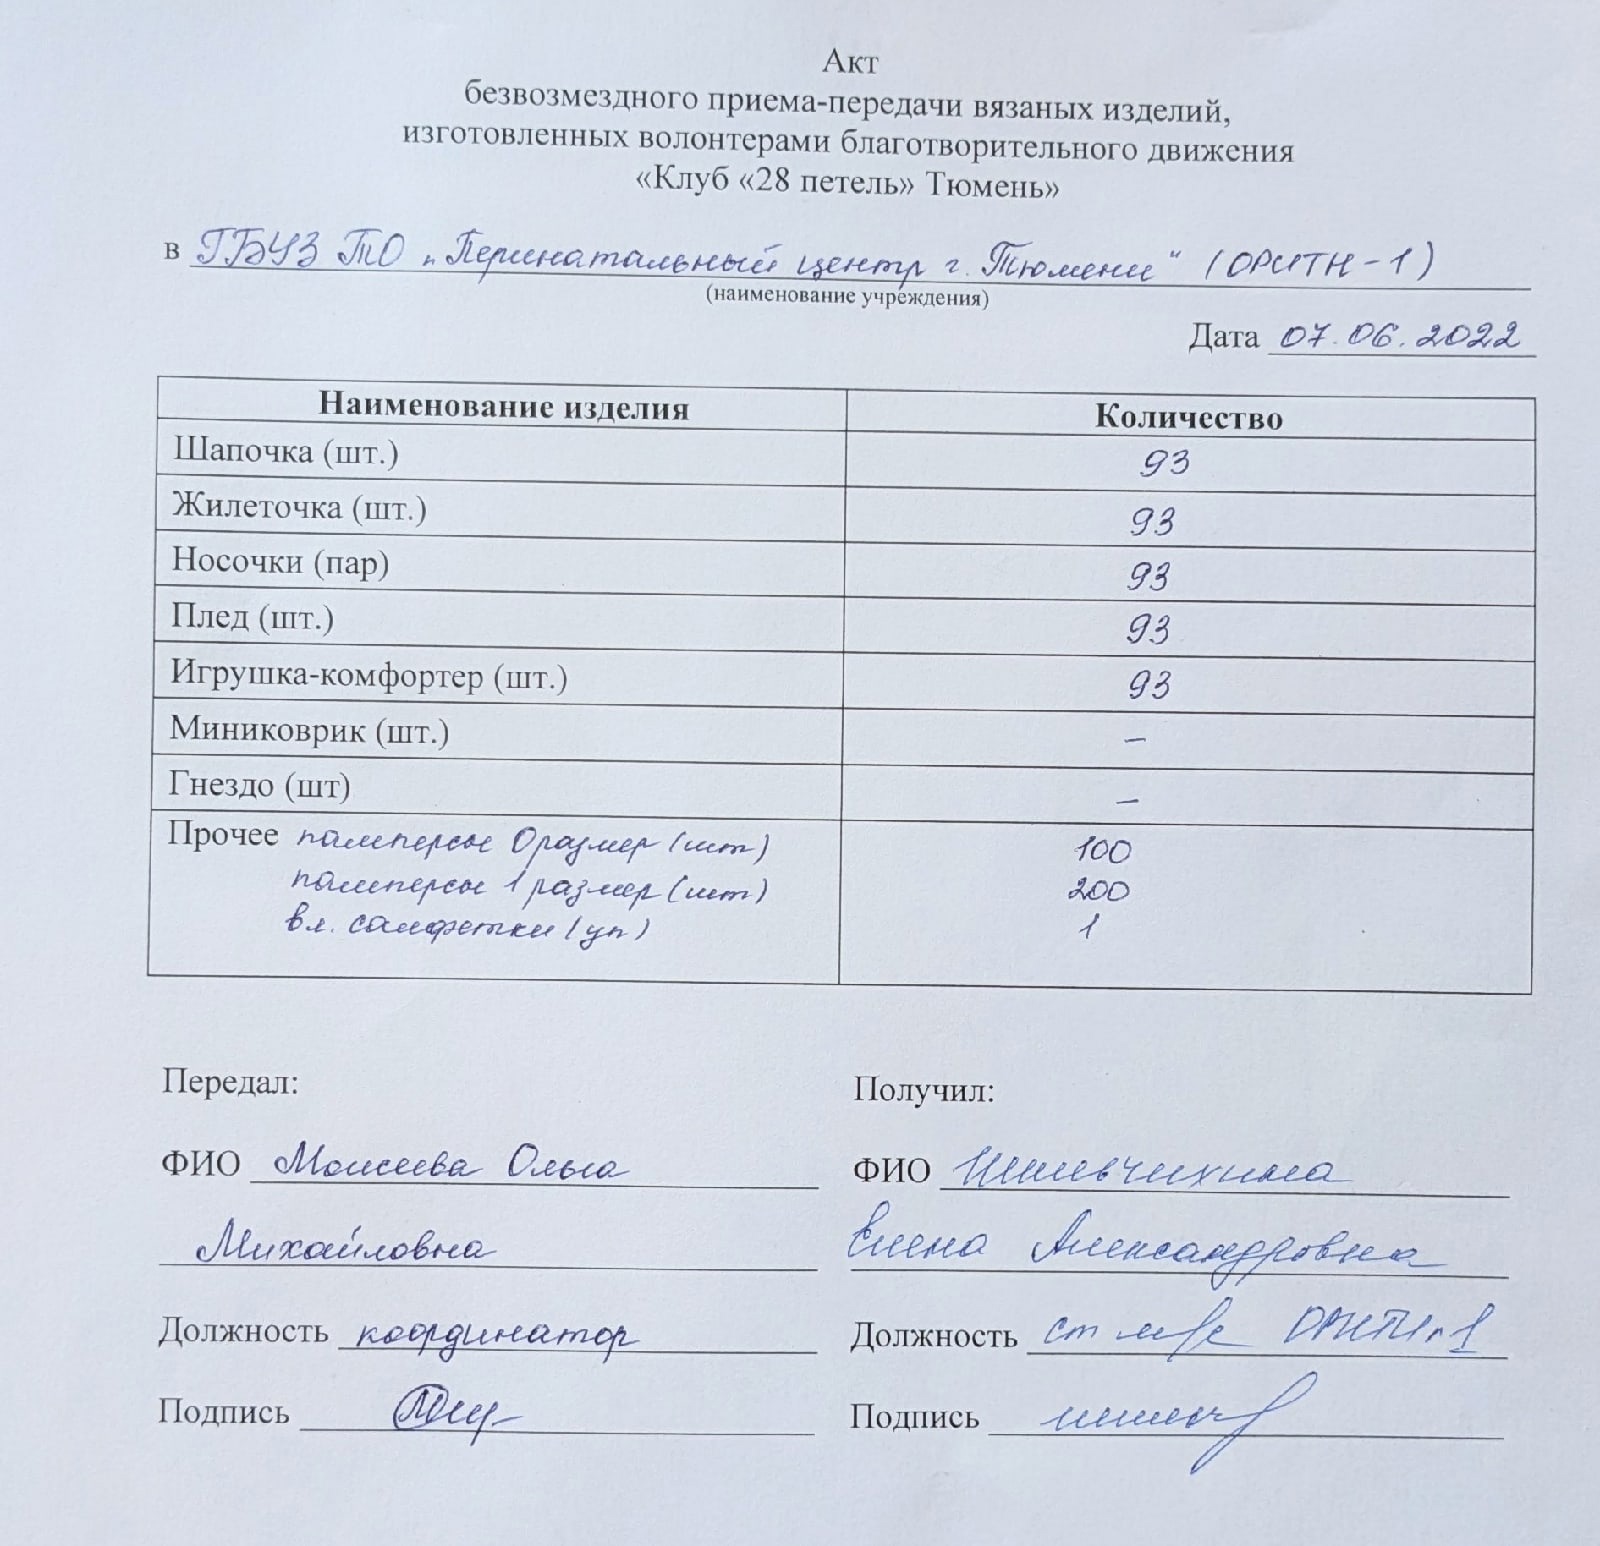 Акт
безвозмездного приема-передачи вязаных изделий,
изготовленных волонтерами благотворительного движения
«Клуб «28 петель» Тюмень»
в ГБУЗ ТО "Перинатальный центр г. Тюмени" (ОРИТН-1)
(наименование учреждения)
Дата 07.06.2022
Наименование изделия Количество
Шапочка (шт.) 93
Жилеточка (шт.) 93
Носочки (пар) 93
Плед (шт.) 93
Игрушка-комфортер (шт.) 93
Миниковрик (шт.) –
Гнездо (шт) –
Прочее памперсы 0 размер (шт) 100
памперсы 1 размер (шт) 200
вл. салфетки (уп) 1
Передал: Получил:
ФИО Моисеева Ольга ФИО
Михайловна Елена Александровна
Должность координатор Должность ст
Подпись Подпись